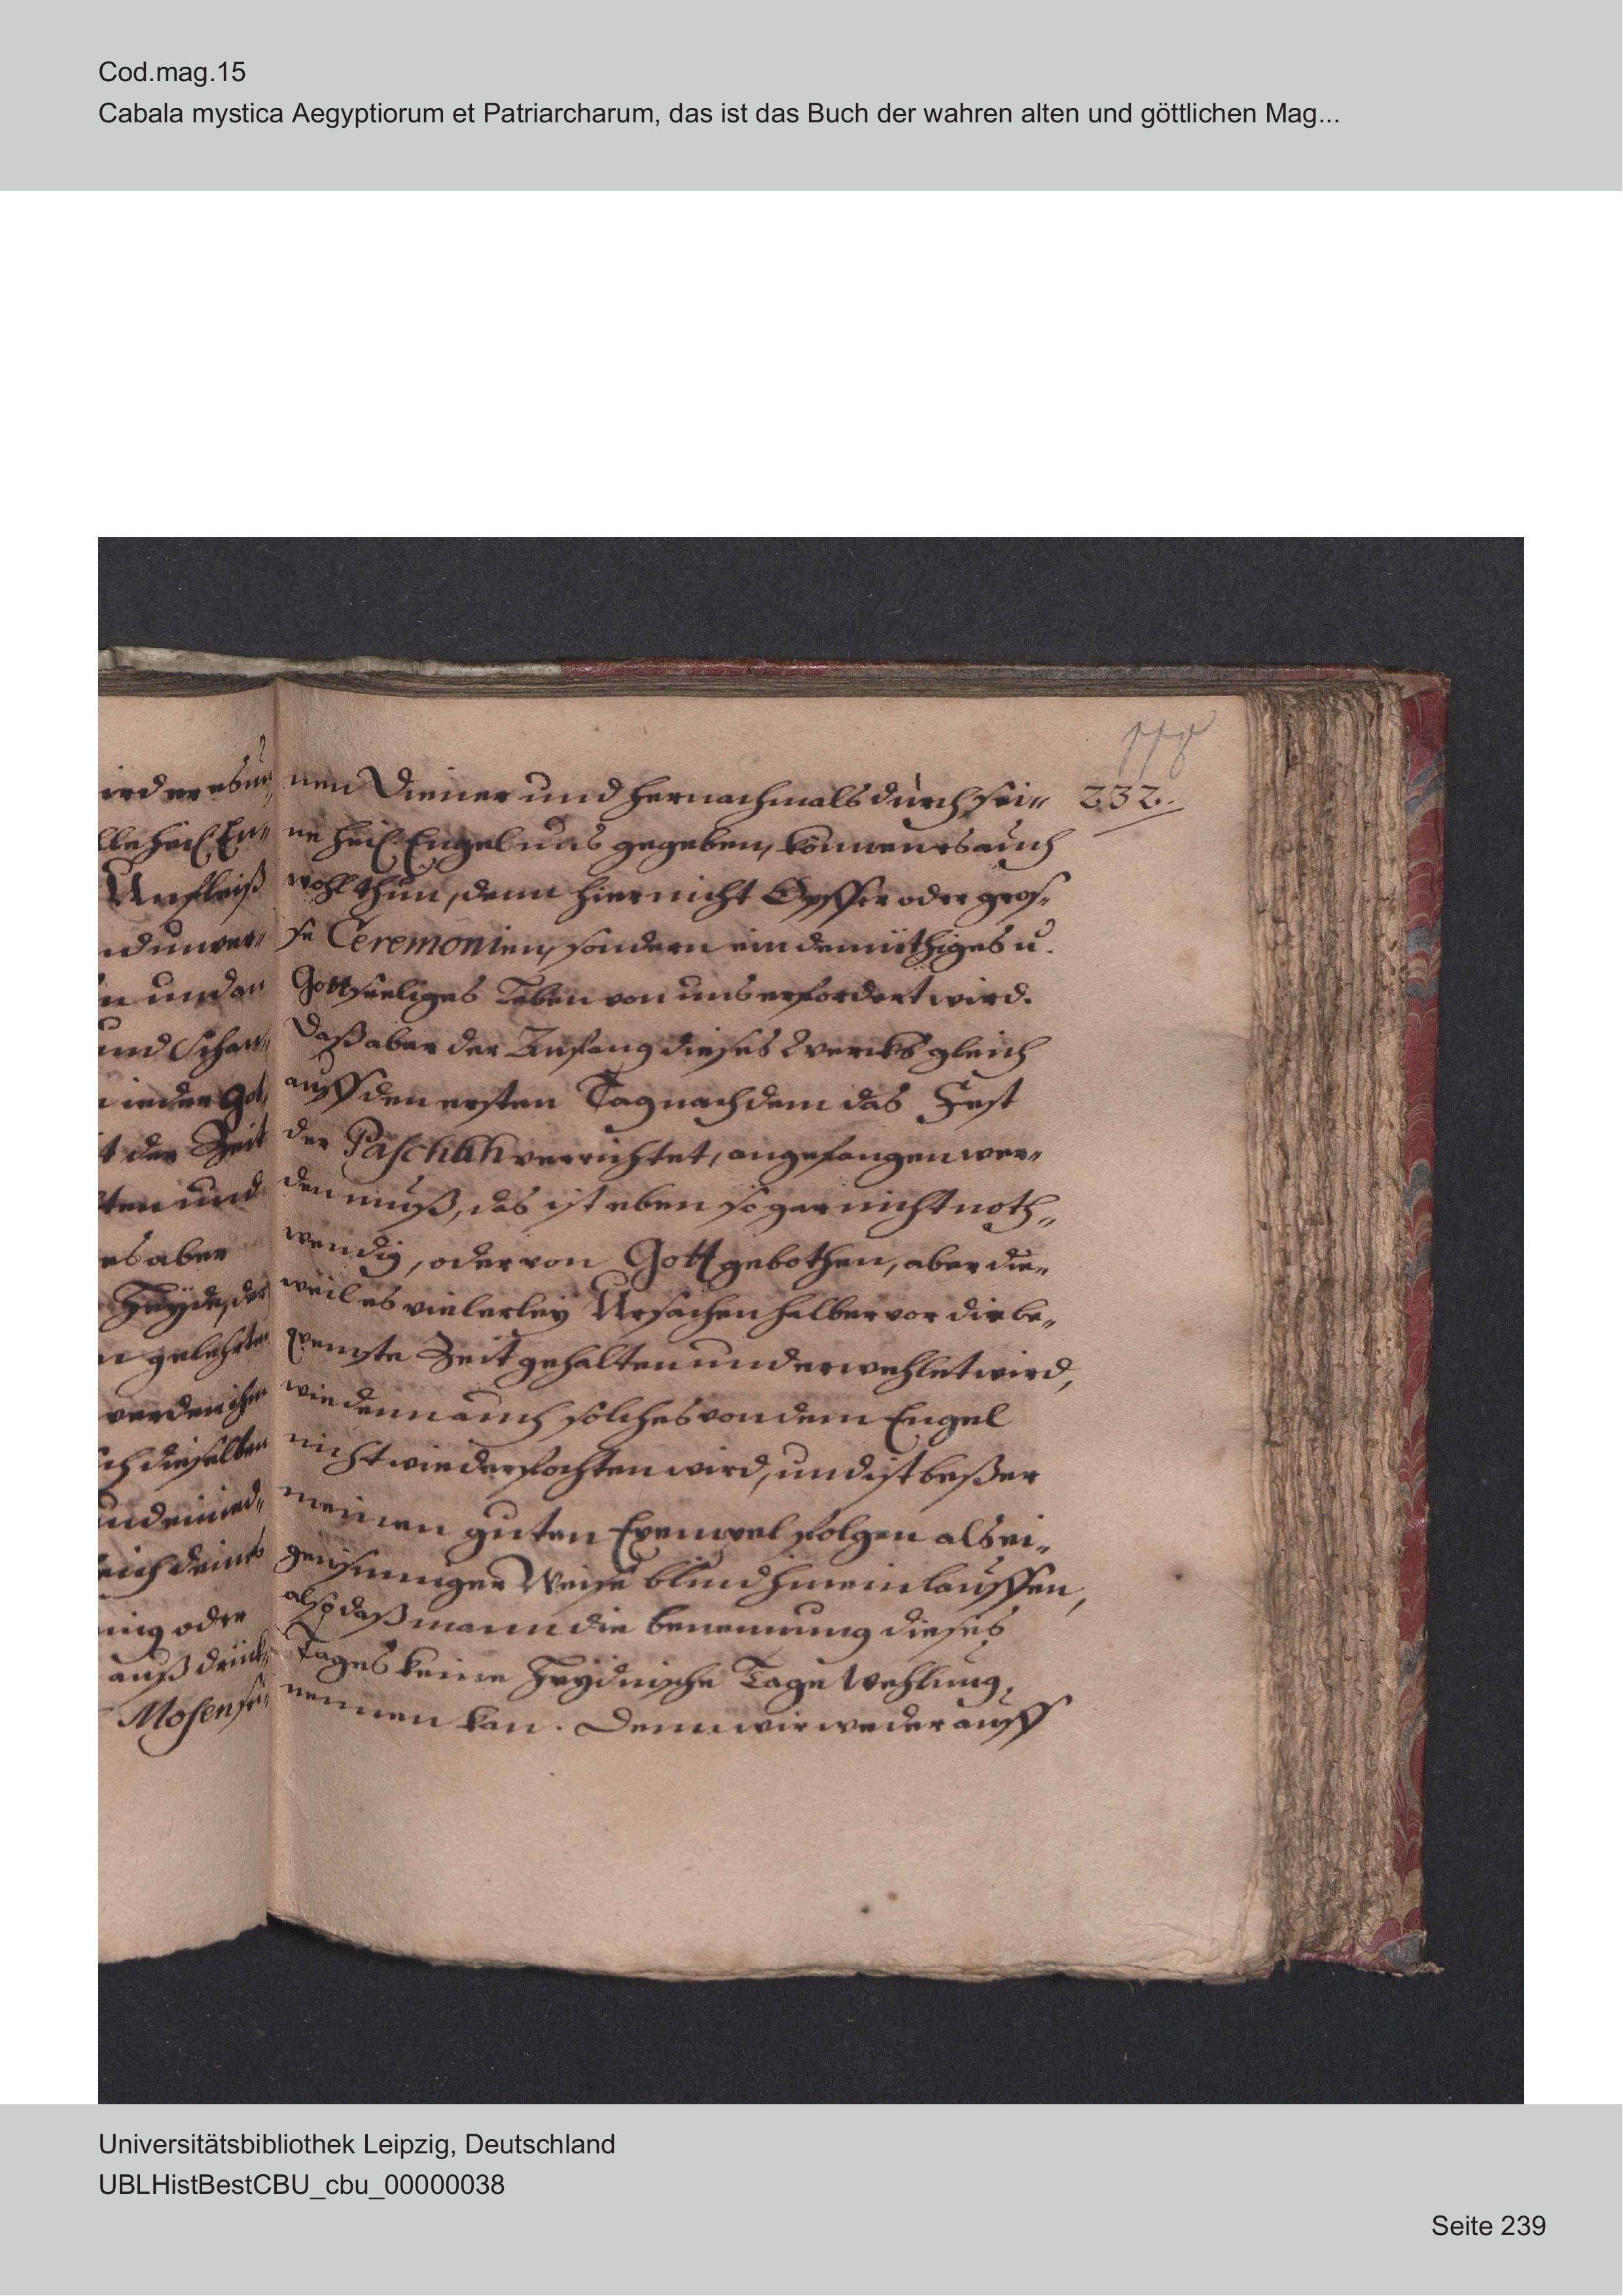 Cod.mag.15
Cabala mystica Aegyptiorum et Patriarcharum, das ist das Buch der wahren alten und göttlichen Mag...
232.
nen Diener und hernachmals durch sei„
ne heil. Engel uns gegeben, können es auch
wohl thun, denn hier nicht Opffer oder gros„
se Ceremonien, sondern ein demüthiges u.
Gottseeliges Leben von uns erfordert wird.
Daß aber der Anfang dieses Wercks gleich
auff den ersten Tag nach dem das Fest
der Paschah verrichtet, angefangen wer„
den muß, das ist eben so gar nicht noth„
wendig, oder von Gott gebothen, aber die„
weil es vielerley Ursachen halber vor die be„
qvemste Zeit gehalten und erwehlet wird,
wie denn auch solches von dem Engel
nicht wiederfochten wird, und ist beßer
meinen guten Exempel folgen als ei„
gensinniger Weise blind hinein lauffen,
also daß mann die benennung dieses
Tages keine Heydnische Tage Wehlung,
nennen kan. Denn wir weder auff
es aber
Heyde, der
gelehrten
werden ihm
dieselben
oder
Mosen sei„
Universitätsbibliothek Leipzig, Deutschland
UBLHistBestCBU_cbu_00000038
Seite 239